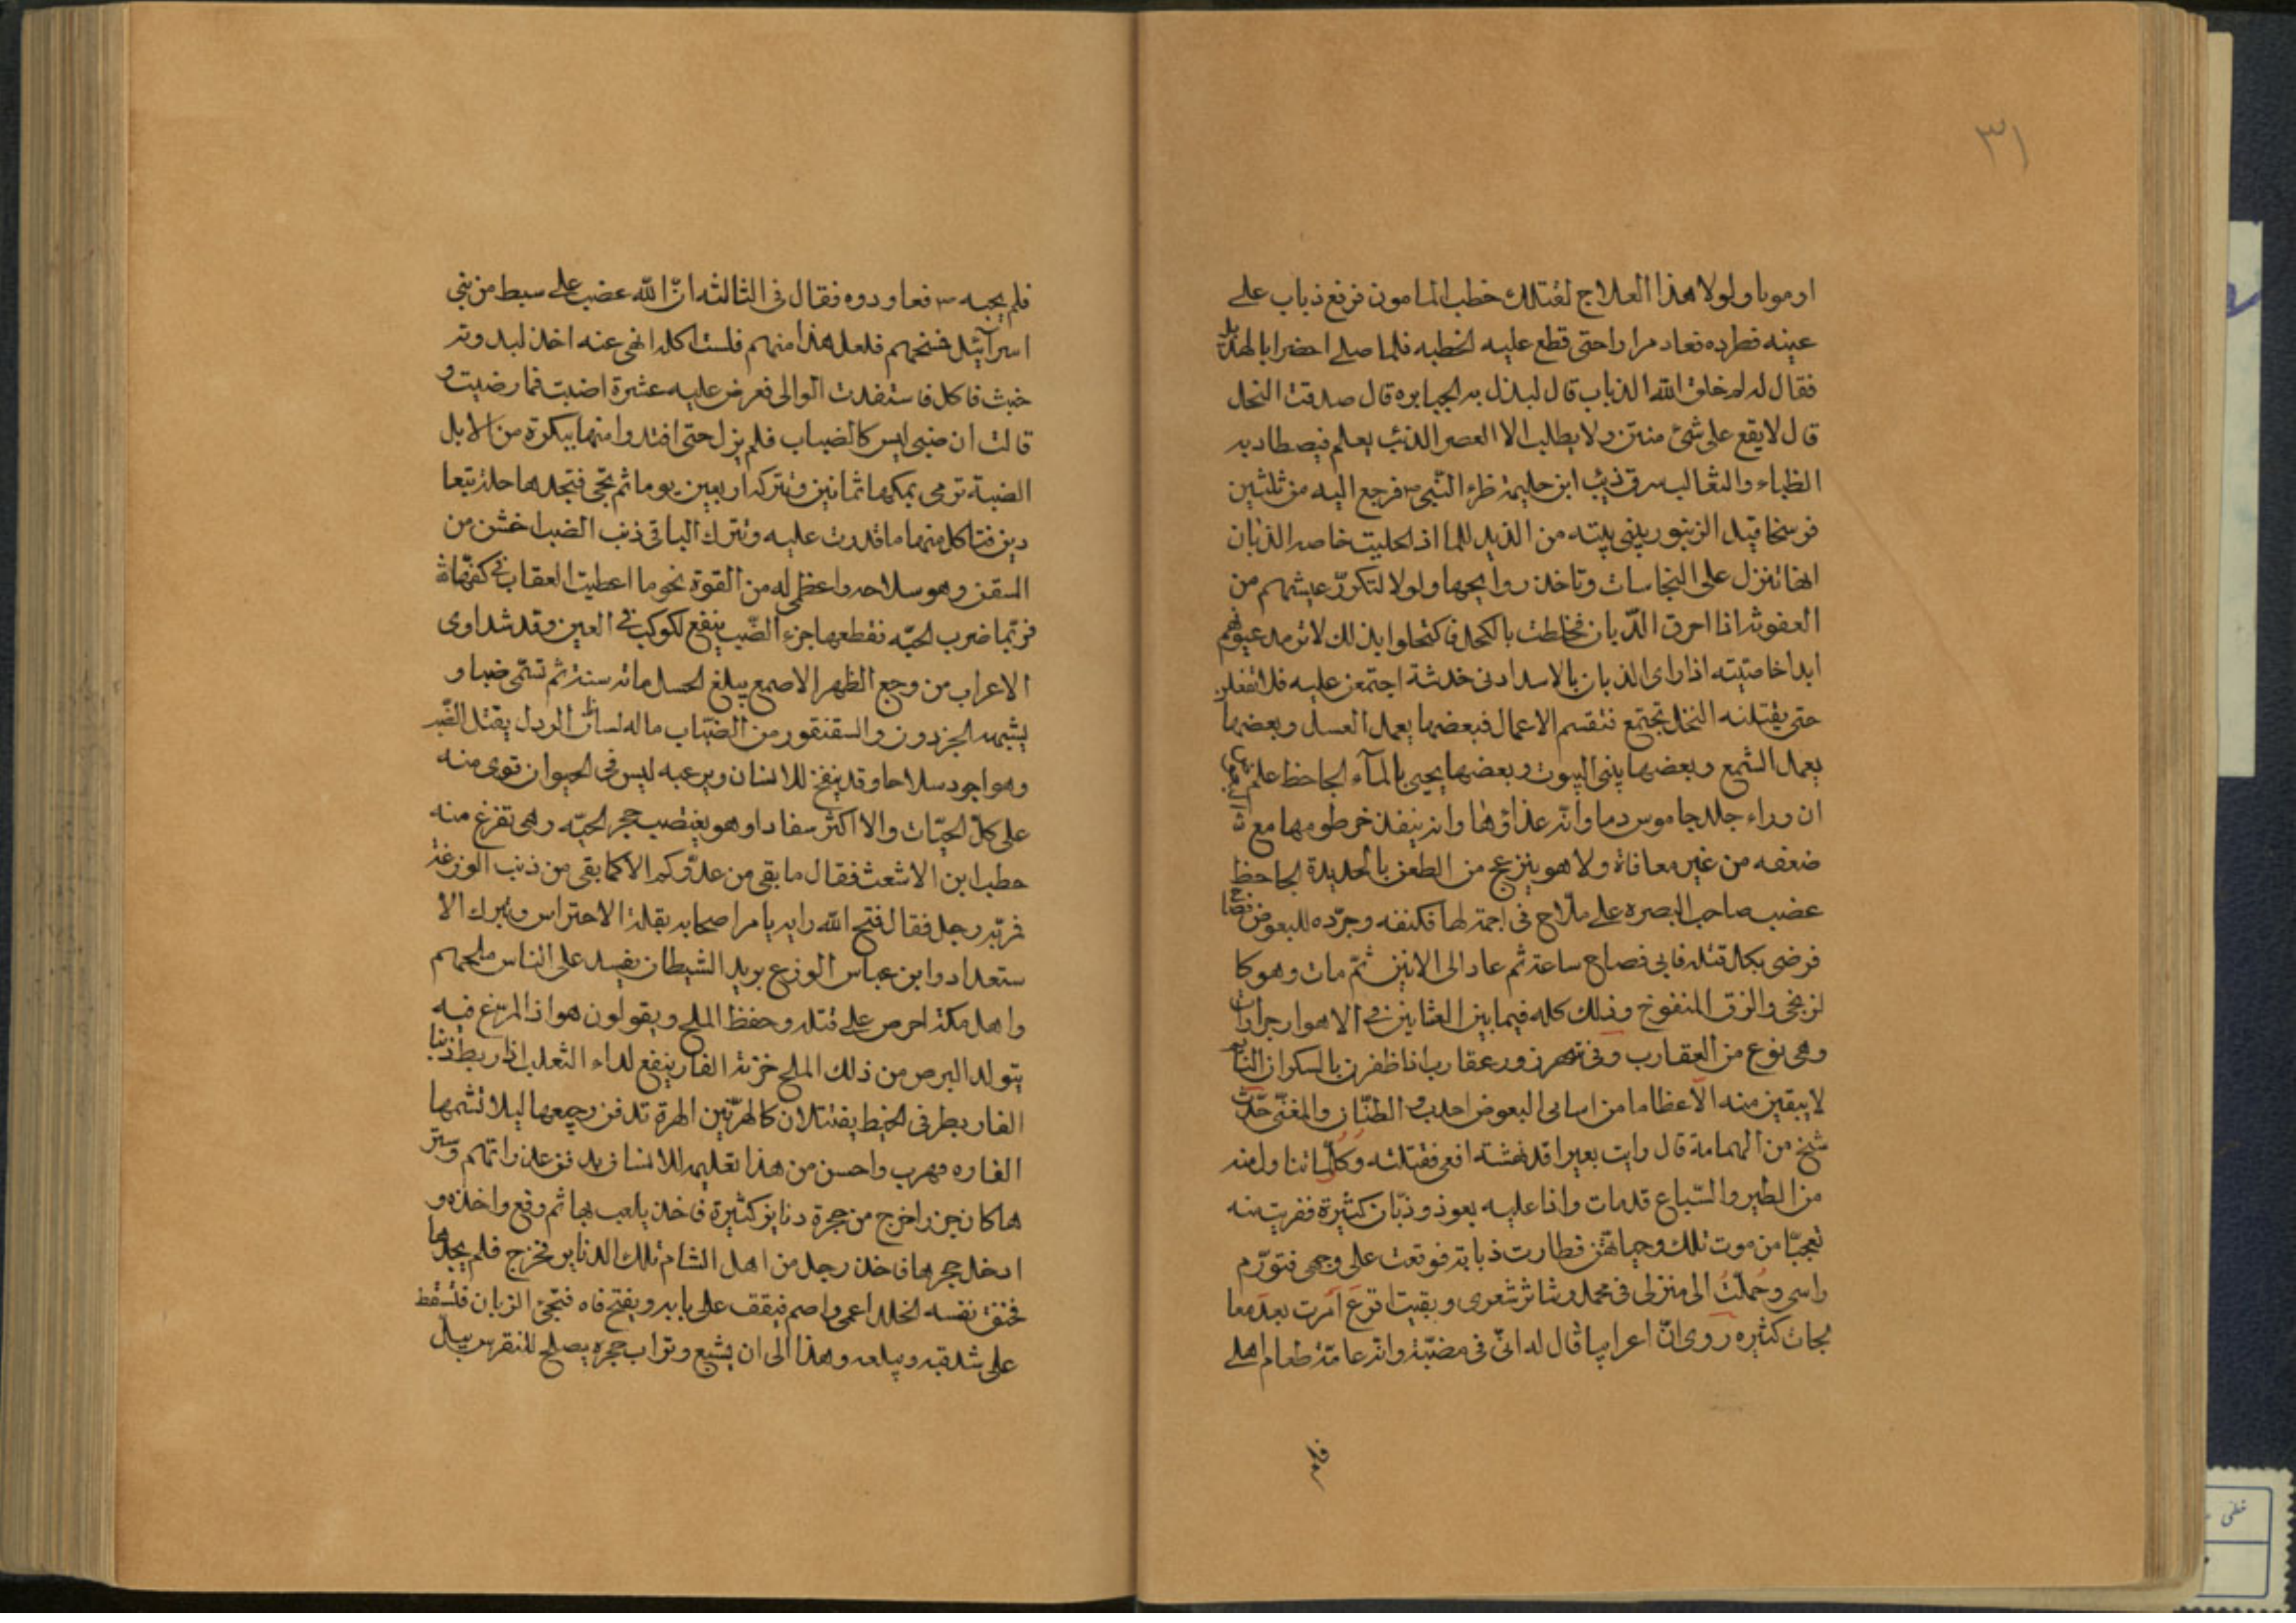 ٣١
او موبا ولولا هذا العلاج لقتلك خطب المامون فوقع ذباب على
عينه فطرده فعاد مرارا حتى قطع عليه الخطبه فلما صلى احضر ابا الهذيل
فقال له لم خلق الله الذباب قال ليذل به الجبابره قال صدقت النحل
قال لا يقع على شئ منتن ولا يطلب الا العصر الذئب يعلم فيصطاد به
الظباء والثعالب سرق ذيب ابن حليمة ظرء النبى ص فرجع اليه من ثلثين
فرسخا قيل الزنبور يبنى بيته من الذبد للما اذ الحليت خاصه الذبان
انها تنزل على النجاسات وتاخذ روايحها ولولا لتكرر عيشهم من
العفونه اذا احرق الذبان فخلطت بالكحل فاكتحلوا بذلك لا ترمد عيونهم
ابدا خاصيته اذا راى الذبان بالاسد ادنى خدشة اجتمعن عليه فلا تفعلن
حتى يقتلنه النحل تجتمع فتقسم الاعمال فبعضها يعمل العسل وبعضها
يعمل الشمع وبعضها يبنى البيوت وبعضها يجيى بالمآء الجاحظ علم البعوض
ان وراء جلد جاموس دما وانه غذاؤها وانه ينفذ خرطومها مع
ضعفه من غير معاناة ولا هو ينزعج من الطعن بالحديدة الجاحظ
غضب صاحب البصره على ملاح فى اجمة لها فكنفه وجرده للبعوض فصاح
فرضى بكل قتله فابى فصاح ساعة ثم عاد الى الانين ثم مات وهو كا
لزنجى والزق المنفوخ وذلك كله فيما بين العشايين فى الاهواز جرارات
وهى نوع من العقارب وفى شهرزور عقارب اذا ظفرن بالسكران النايم
لا يبقين منه الا عظاما من اسامى البعوض احدب الطنان والمغنى حدث
شيخ من اليمامة قال رايت بعيرا قد نهشته افعى فقتلته وكل ما تناول منه
من الطير والسباع قد مات واذا عليه بعوض وذبان كثيرة فقربت منه
تعجبا من موت تلك وحياتهن فطارت ذبابة فوقعت على وجهى فتورم
راسى وحملت الى منزلى فى محمل وتناثر شعرى وبقيت اقرع امرت بعدمعا
لجات كثيره روى ان اعرابيا قال له انى فى مضبة وانه عامة طعام اهلى
فلم يجبه ص فعاودوه فقال فى الثالثه ان الله غضب على سبط من بنى
اسرآئيل فمسخهم فلعل هذا منهم فلست اكله انهى عنه اخذ لبدويه
خبث فاكل فاستفدت الوالى فعرض عليه عشرة اضبت فما رضيت و
قالت ان ضبى ليس كالضباب فلم يزل حتى افتدوا منها ببكرة من الابل
الضبة ترمى بمكنها ثمانين وتتركه اربعين يوما ثم تجى فتجدها حلة تتعا
دين فتاكل منها ما قدرت عليه وتترك الباقى ذنب الضب اخشن من
السفن وهو سلاحه واعظى له من القوة نحو ما اعطيت العقاب فى كفها
فربما ضرب الحيه فقطعها جزء الضب ينفع لكوكب فى العين وقد شداوى
الاعراب من وجع الظهر الاصمع يبلغ الحسل مائه سنة ثم تسمى ضبا و
يشبهه الجرذون والسقنقور من الضباب ما له لسانان الورل يقتل الضب
وهو اجود سلاحا وقد ينفخ للانسان ويرعبه ليس فى الحيوان اقوى منه
على كل الحيات والا اكثر سفادا وهو يغتصب جحر الحيه وهى تفزع منه
خطب ابن الاشعث فقال ما بقى من عدوكم الا كما بقى من ذنب الوزغة
فربه رجل فقال فتح الله رايه يامر اصحابه بقلة الاحتراس وبترك الا
ستعداد وابن عباس الوزغ بريد الشيطان يفسد على الناس ملحهم
واهل مكة احرص على قتله وحفظ الملح ويقولون هو اذا المرتغ فيه
يتولد البرص من ذلك الملح خزنة الفار ينفع لداء الثعلب اذا ربط ذنبا
الفار بطرفى الخيط يقتتلان كالهرتين الهرة تدفن رجيعها ليلا تشمها
الفاره فهرب واحسن من هذا تعليمه للانسان بدفن عذراتهم وستر
هاكان جرذ اخرج من حجرة دنانير كثيرة فاخذ يلعب بها ثم وقع واخذه و
ادخل جحرها فاخذ رجل من اهل الشام تلك الدنانير فخرج فلم يجدها
فخنق نفسه الخلد اعمى واصم فيقف على بابه ويفتح فاه فتجئ الذبان فتسقط
على شدقيه ويبلعه وهذا الى ان يشبع وتراب حجره يصلح للنقرس يبل